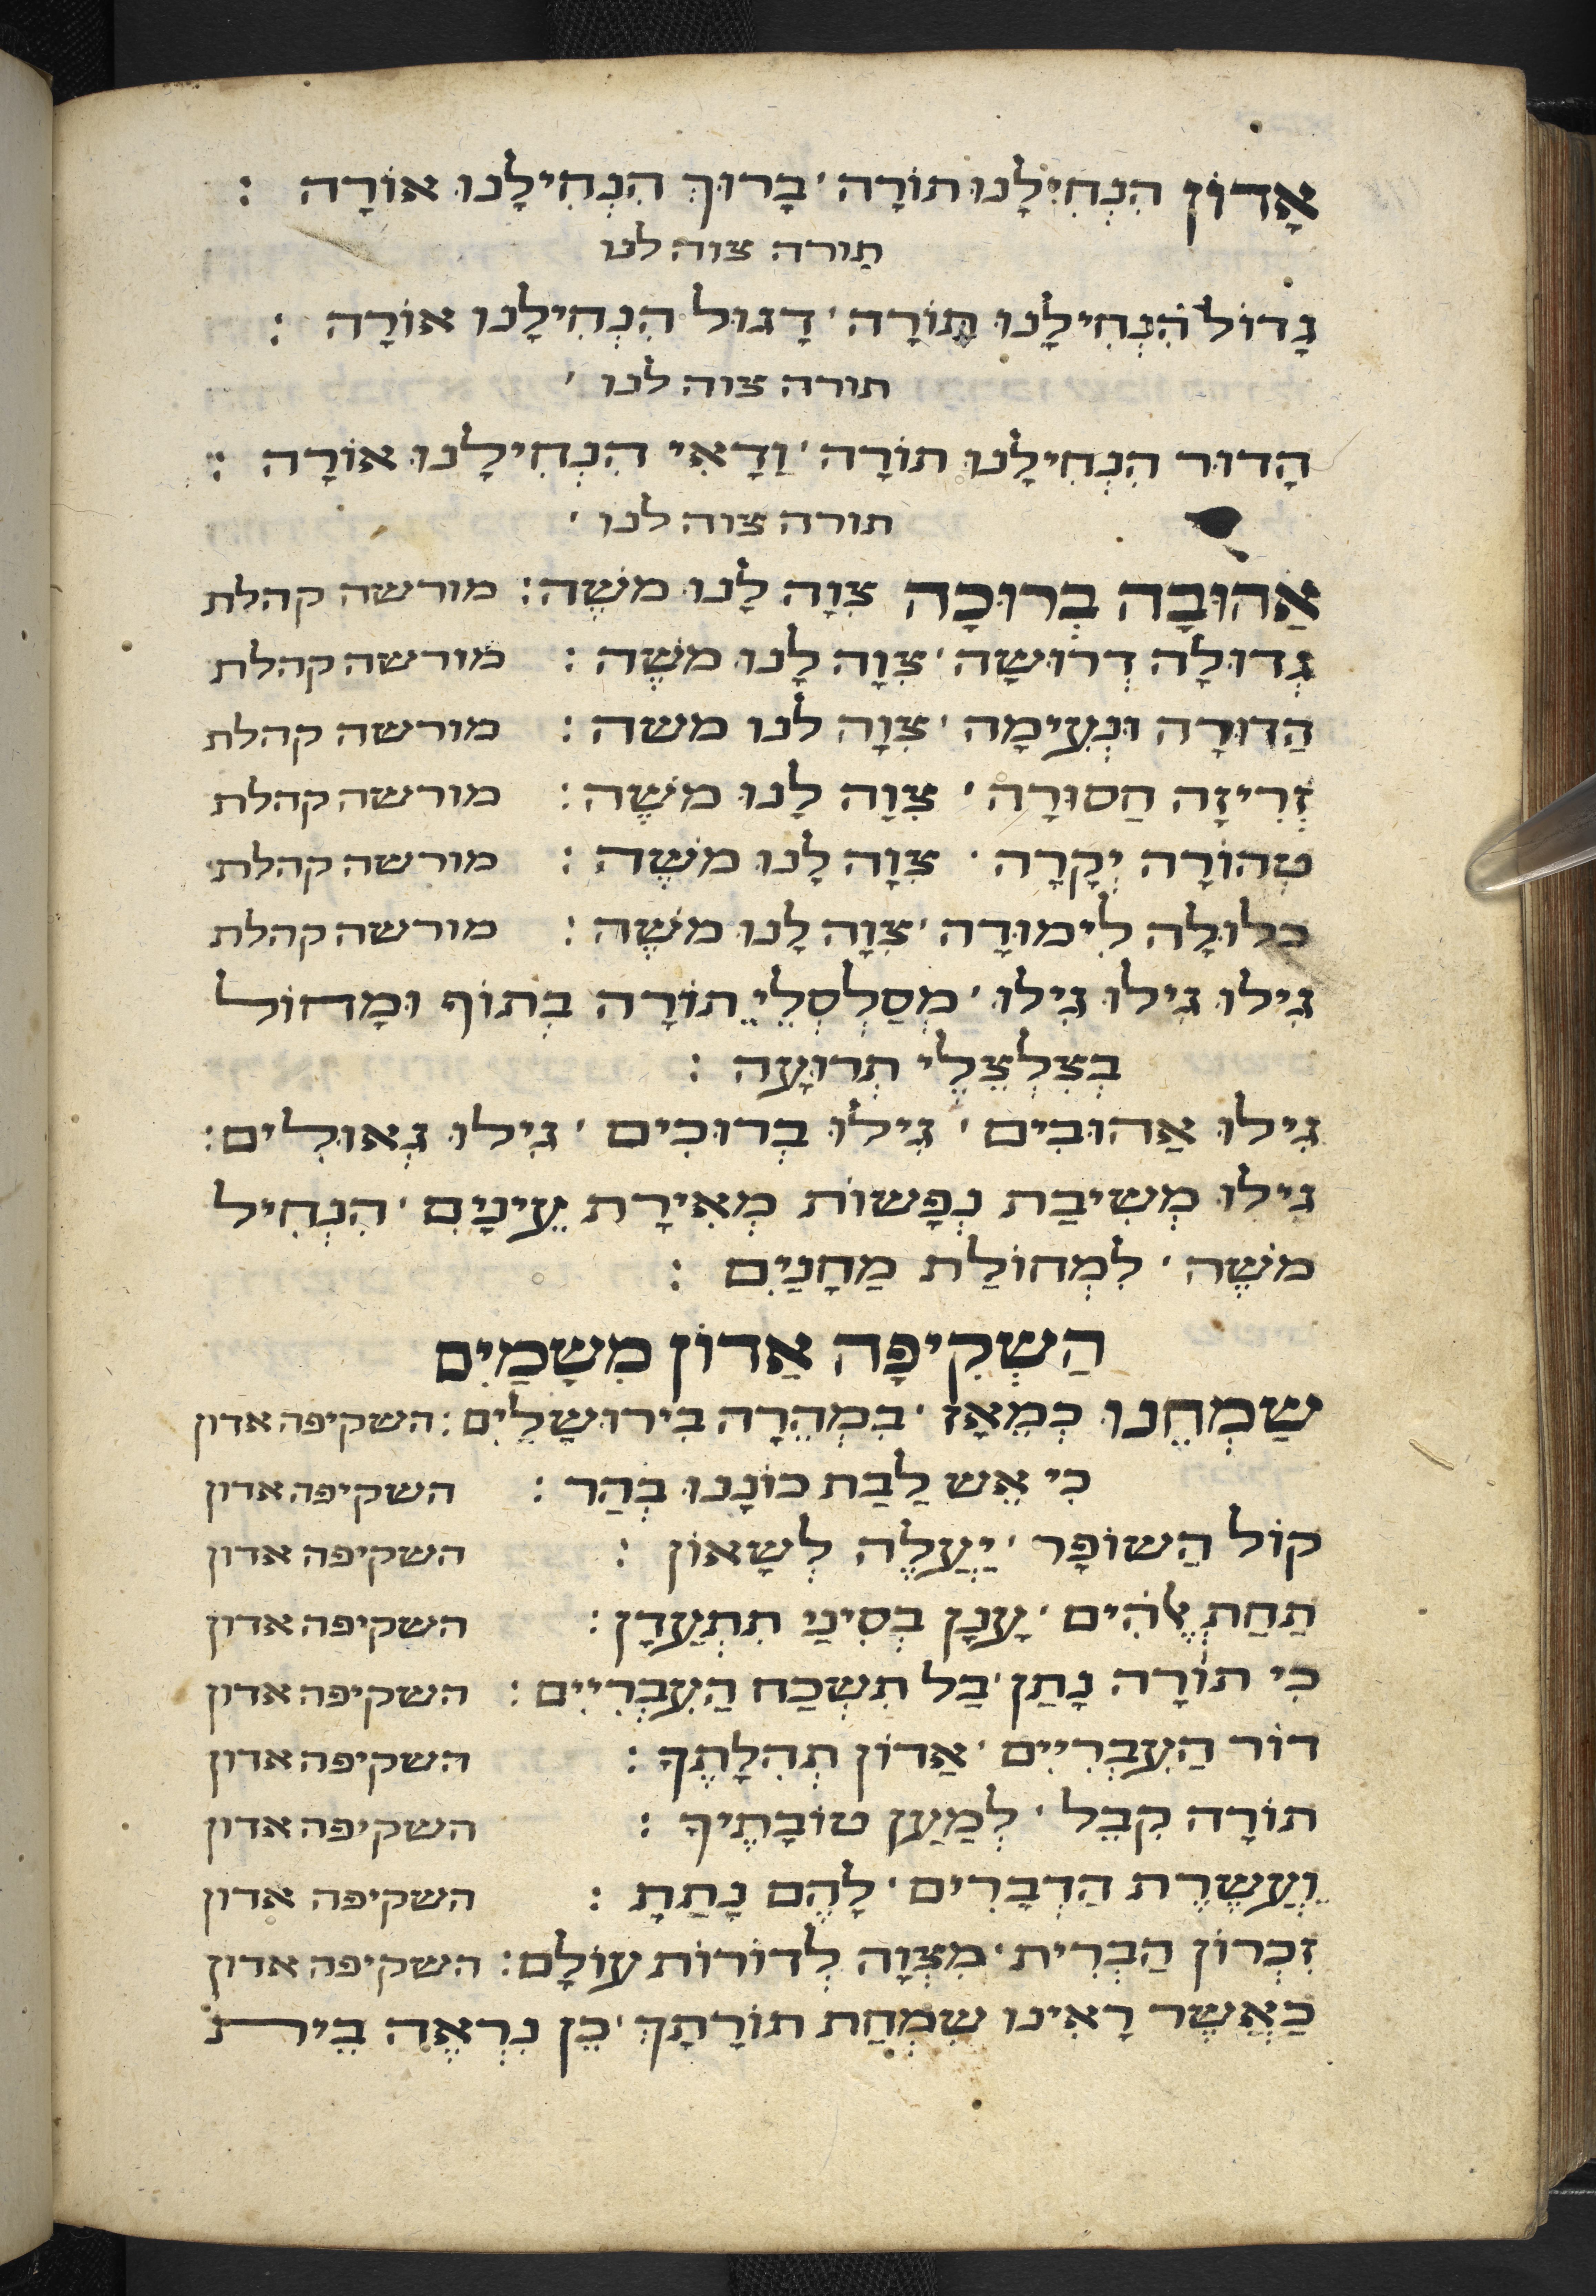 אָדוֹן הִנְחִילָנוּ תוֹרָה ׳ בָרוּךְ הִנְחִילָנוּ אוֹרָה :
תורה צוה לנו
גָדוֹל הִנְחִילָנוּ תּוֹרָה ׳ דָגוּל הִנְחִילָנוּ אוֹרָה :
תורה צוה לנו ׳
הָדוּר הִנְחִילָנוּ תוֹרָה ׳ וַדָאִי הִנְחִילָנוּ אוֹרָה :
תורה צוה לנו ׳
אַהוּבָה בְרוּכָה צִוָה לָנוּ מֹשֶה : מורשה קהלת
גְדוּלָה דְרוּשָה ׳ צִוָה לָנוּ מֹשֶה : מורשה קהלת
הַדוּרָה וּנְעִימָה ׳ צִוָה לנו משה : מורשה קהלת
זְרִיזָה חַסוּרָה ׳ צִוָה לָנוּ מֹשֶה : מורשה קהלת
טְהוֹרָה יְקָרָה ׳ צִוָה לָנוּ מֹשֶה : מורשה קהלת
כלוּלָה לִימוּדָה ׳ צִוָה לָנוּ מֹשֶה : מורשה קהלת
גִילוּ גִילוּ גִילוּ ׳ מְסַלְסְלֵי תוֹרָה בְתוֹף וּמָחוֹל
בְצִלְצְלֵי תְרוּעָה :
גִילוּ אַהוּבִים ׳ גִילוּ בְרוּכִים ׳ גִילוּ גְאוּלִים :
גִילוּ מְשִיבַת נְפָשוֹת מְאִירָת עֵינָיִם ׳ הִנְחִיל
מֹשֶה ׳ לִמְחוֹלַת מַחָנַיִם :
הַשְקִיפָה אַדוֹן מִשָמַיִם
שַמְחֵנוּ כְמֵאָז ׳ בִמְהֵרָה בִירוּשָלַיִם : השקיפה אדון
כִי אֵש לַבַת כוֹנָנוּ בְהַר : השקיפה אדון
קוֹל הַשוֹפָר ׳ יַעֲלֶה לְשָאוֹן : השקיפה אדון
תַחַת אֱלֹהִים ׳ עָנָן בְסִינַי תִתְעַדָן : השקיפה אדון
כִי תוֹרָה נָתַן ׳ בַל תִשְכַח הַעִבְרִיִים : השקיפה אדון
דוֹר הַעִבְרִיִים ׳ אַדוֹן תְהִלָתֶךָ : השקיפה אדון
תוֹרָה קִבֵל ׳ לְמַעַן טוֹבָתֶיךָ : השקיפה אדון
וַעֲשֶרֶת הַדְבָרִים ׳ לָהֶם נָתַתָ : השקיפה אדון
זִכְרוֹן הַבְרִית ׳ מִצְוָה לְדוֹרוֹת עוֹלָם : השקיפה אדון
כַאֲשֶר רָאִינוּ שִמְחַת תוֹרָתָךְ ׳ כֵן נִרְאֶה בֵית